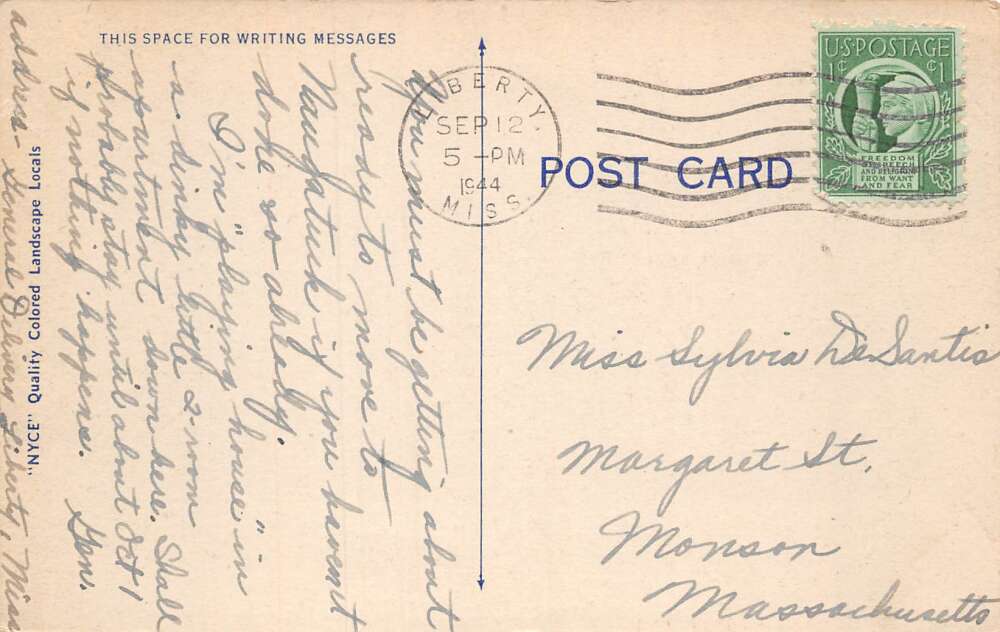 THIS SPACE FOR WRITING MESSAGES
You must be getting about
ready to move to
Naugatuck if you havent
done so already.
I'm "playing house" in
a doky little 2-room
apourtment down here. Shall
probably stay until about Oct 1
if nothing happens. Gen.
address - General Delivery Liberty, Miss
"NYCE" Quality Colored Landscape Locals
LIBERTY,
SEP 12
5 - PM
1944
MISS.
U.S. POSTAGE
1¢ ¢1
FREEDOM
OF SPEECH
AND RELIGION
FROM WANT
AND FEAR
POST CARD
Miss Sylvia DeSantis
Margaret St.
Monson
Massachusetts